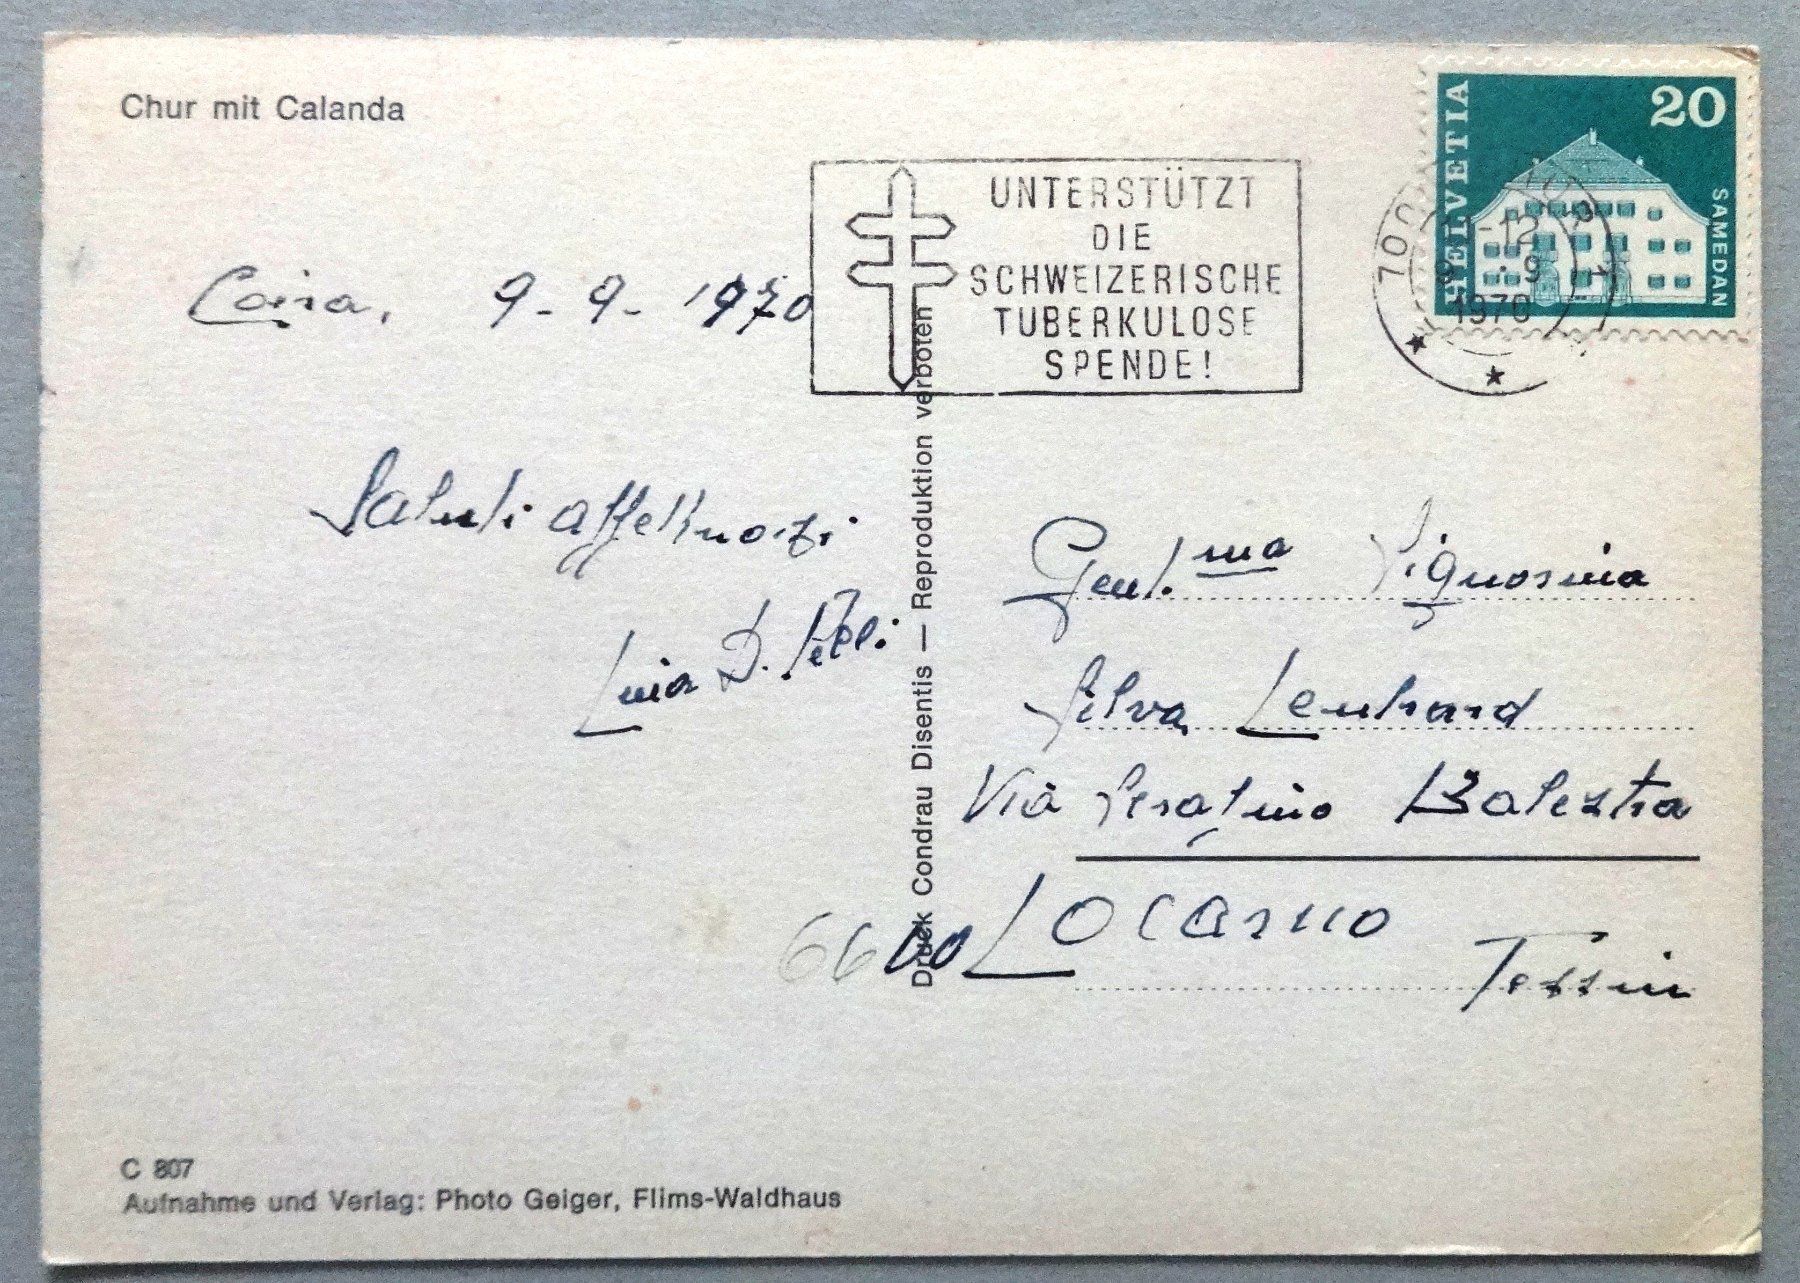 Chur mit Calanda
HELVETIA
20
SAMEDAN
UNTERSTÜTZT
DIE
SCHWEIZERISCHE
TUBERKULOSE
SPENDE!
-12
9.-9
1970
Coira, 9-9-1970
Saluti affettuosi
Luia D. Pelli
Gent.ma Signorina
Silva Lenhard
Via Serafino Balestra
6600 Locarno
Tessin
Druck Condrau Disentis — Reproduktion verboten
C 807
Aufnahme und Verlag: Photo Geiger, Flims-Waldhaus